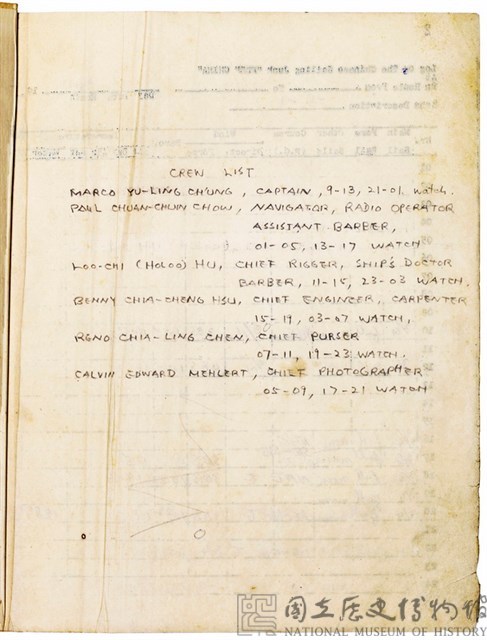 CREW LIST
MARCO YU-LING CHUNG, CAPTAIN, 9-13, 21-01 WATCH.
PAUL CHUAN-CHUIN CHOW, NAVIGATOR, RADIO OPERATOR
ASSISTANT BARBER,
01-05, 13-17 WATCH
LOO-CHI (HOLOO) HU, CHIEF RIGGER, SHIP'S DOCTOR
BARBER, 11-15, 23-03 WATCH.
BENNY CHIA-CHENG HSU, CHIEF ENGINEER, CARPENTER
15-19, 03-07 WATCH,
RENO CHIA-LING CHEN, CHIEF PURSER
07-11, 19-23 WATCH.
CALVIN EDWARD MEHLERT, CHIEF PHOTOGRAPHER
05-09, 17-21 WATCH
國立歷史博物館
NATIONAL MUSEUM OF HISTORY